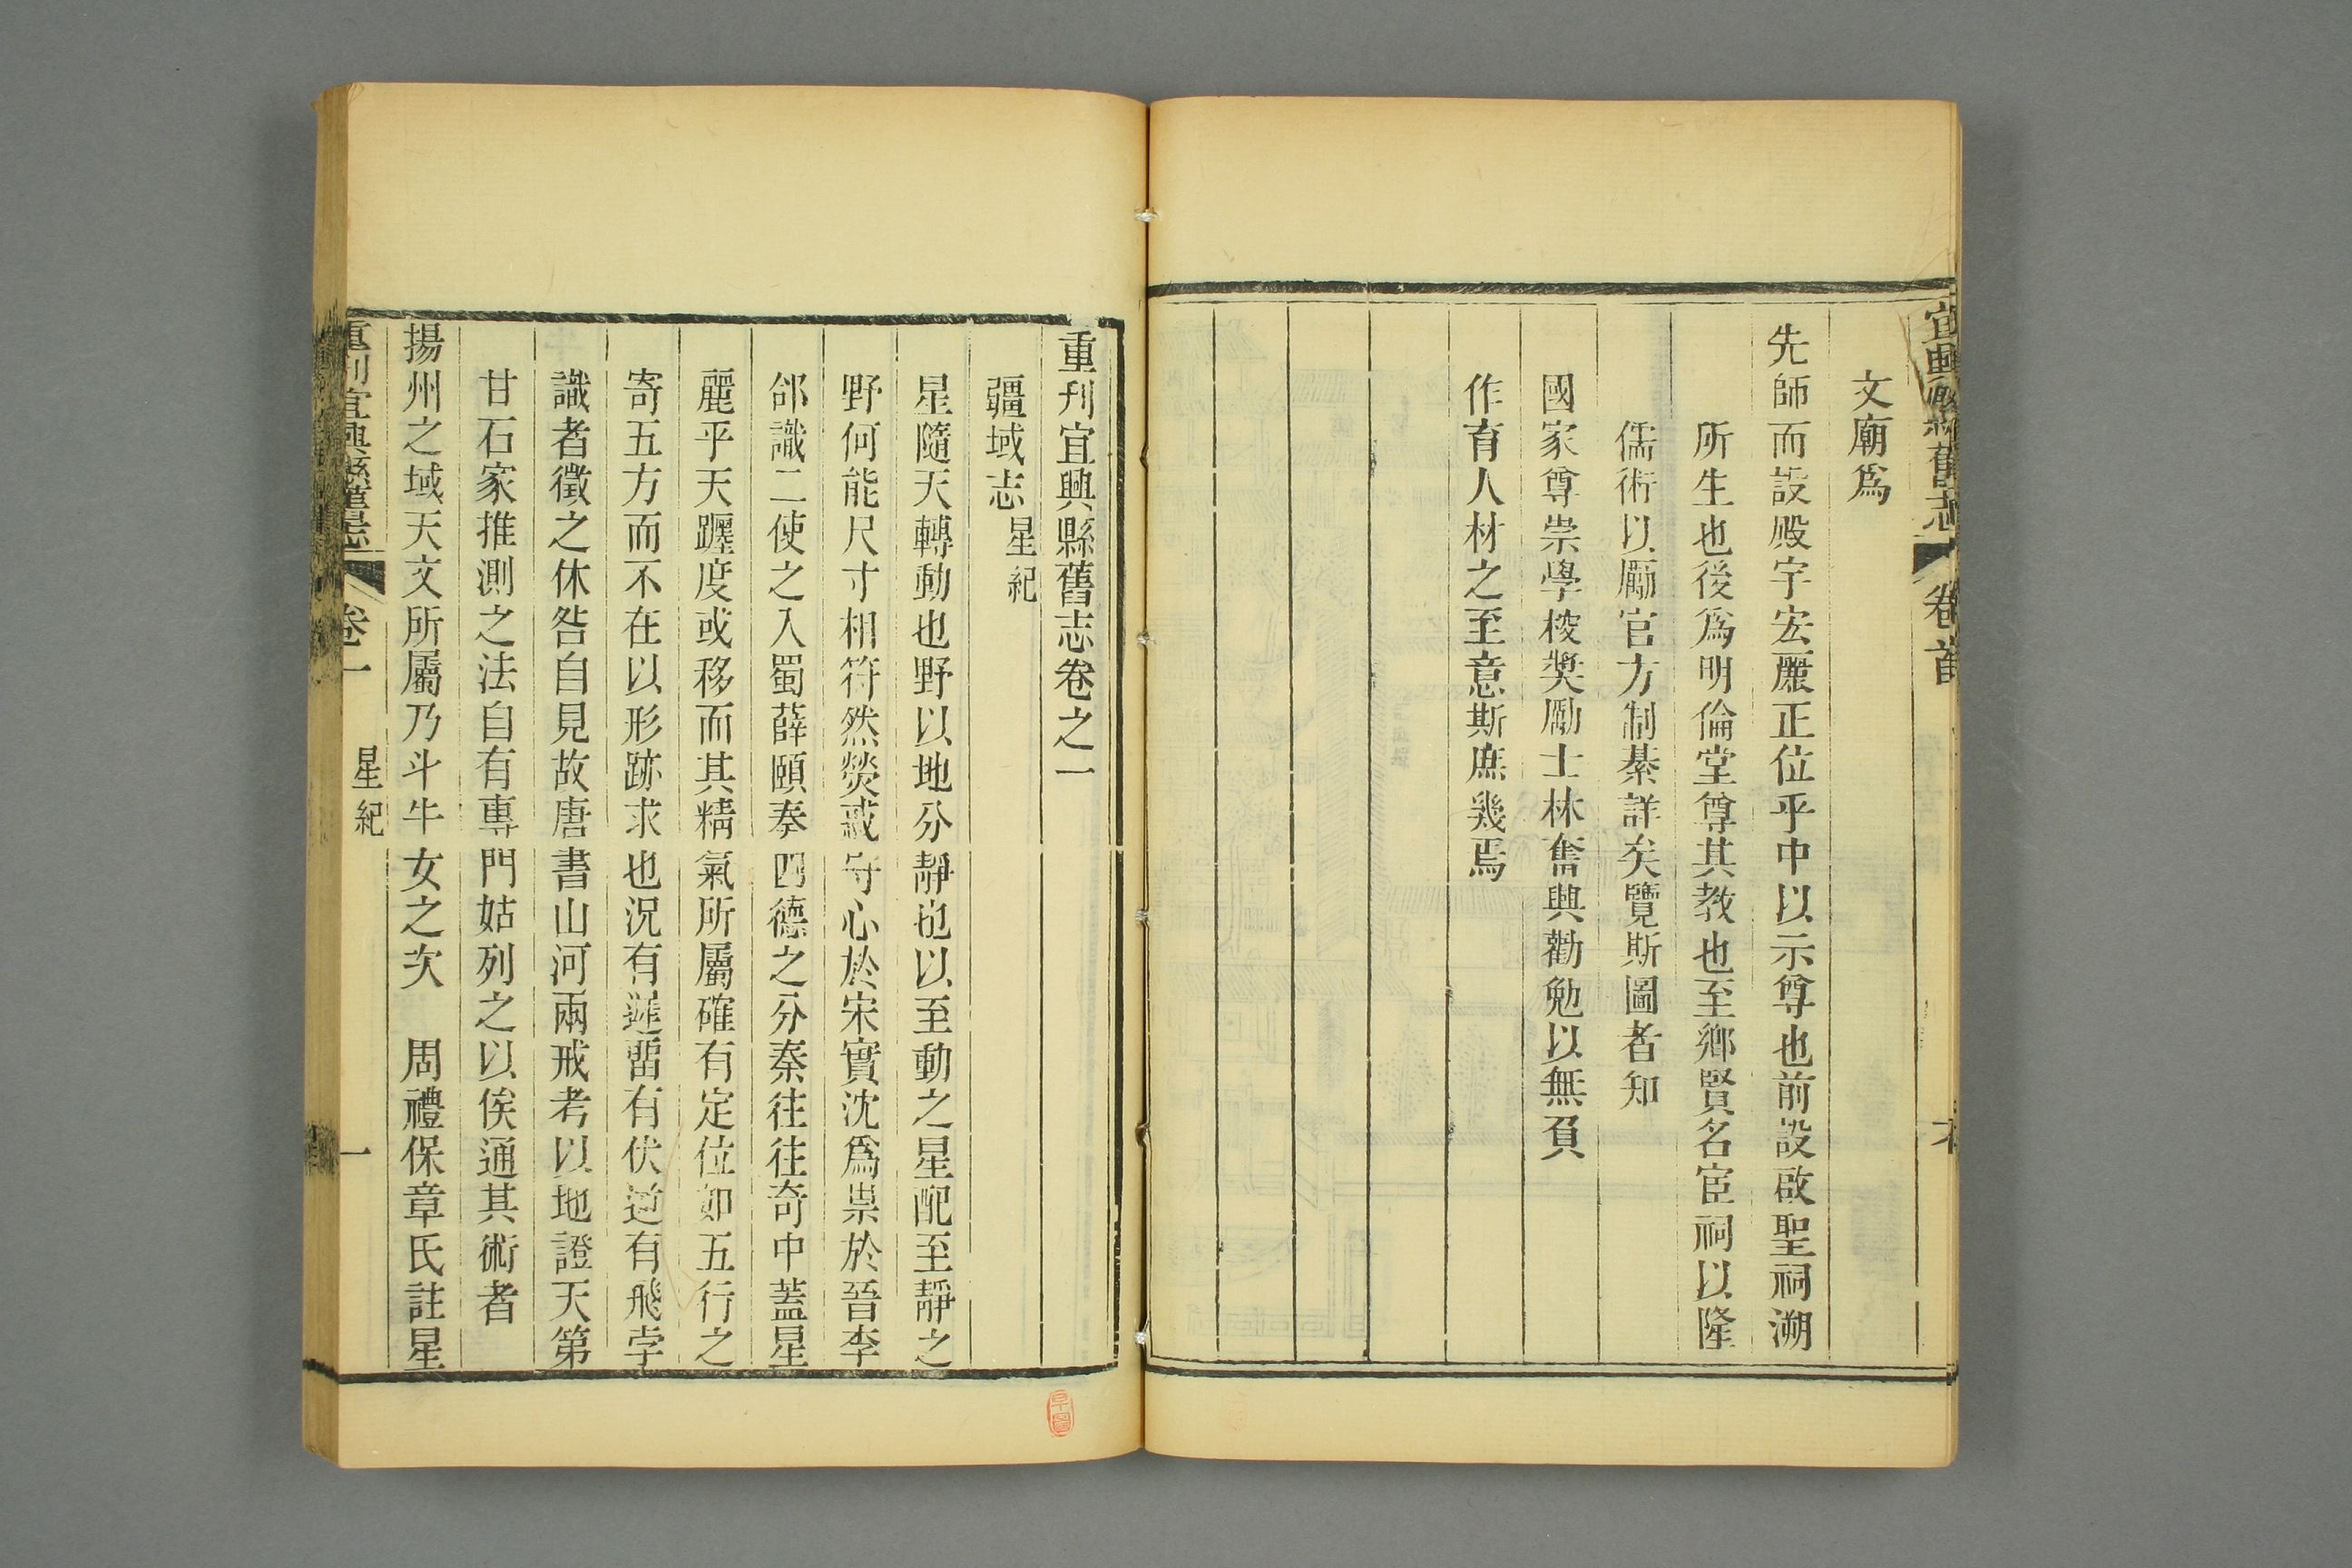 宜興縣舊志 卷首
文廟爲
先師而設殿宇宏麗正位乎中以示尊也前設啟聖祠溯
所生也後爲明倫堂尊其教也至鄉賢名宦祠以隆
儒術以勵官方制綦詳矣覽斯圖者知
國家尊崇學校奬勵士林奮興勸勉以無負
作育人材之至意斯庶幾焉
重刊宜興縣舊志卷之一
疆域志 星紀
星隨天轉動也野以地分靜也以至動之星配至靜之
野何能尺寸相符然熒惑守心於宋實沈爲祟於晉李
郃識二使之入蜀薛頤奏四德之分秦往往奇中蓋星
麗乎天躔度或移而其精氣所屬確有定位如五行之
寄五方而不在以形跡求也況有遲畱有伏逆有飛孛
識者徵之休咎自見故唐書山河兩戒考以地證天第
甘石家推測之法自有專門姑列之以俟通其術者
揚州之域天文所屬乃斗牛女之次 周禮保章氏註星
重刊宜興縣舊志 卷一 星紀 一